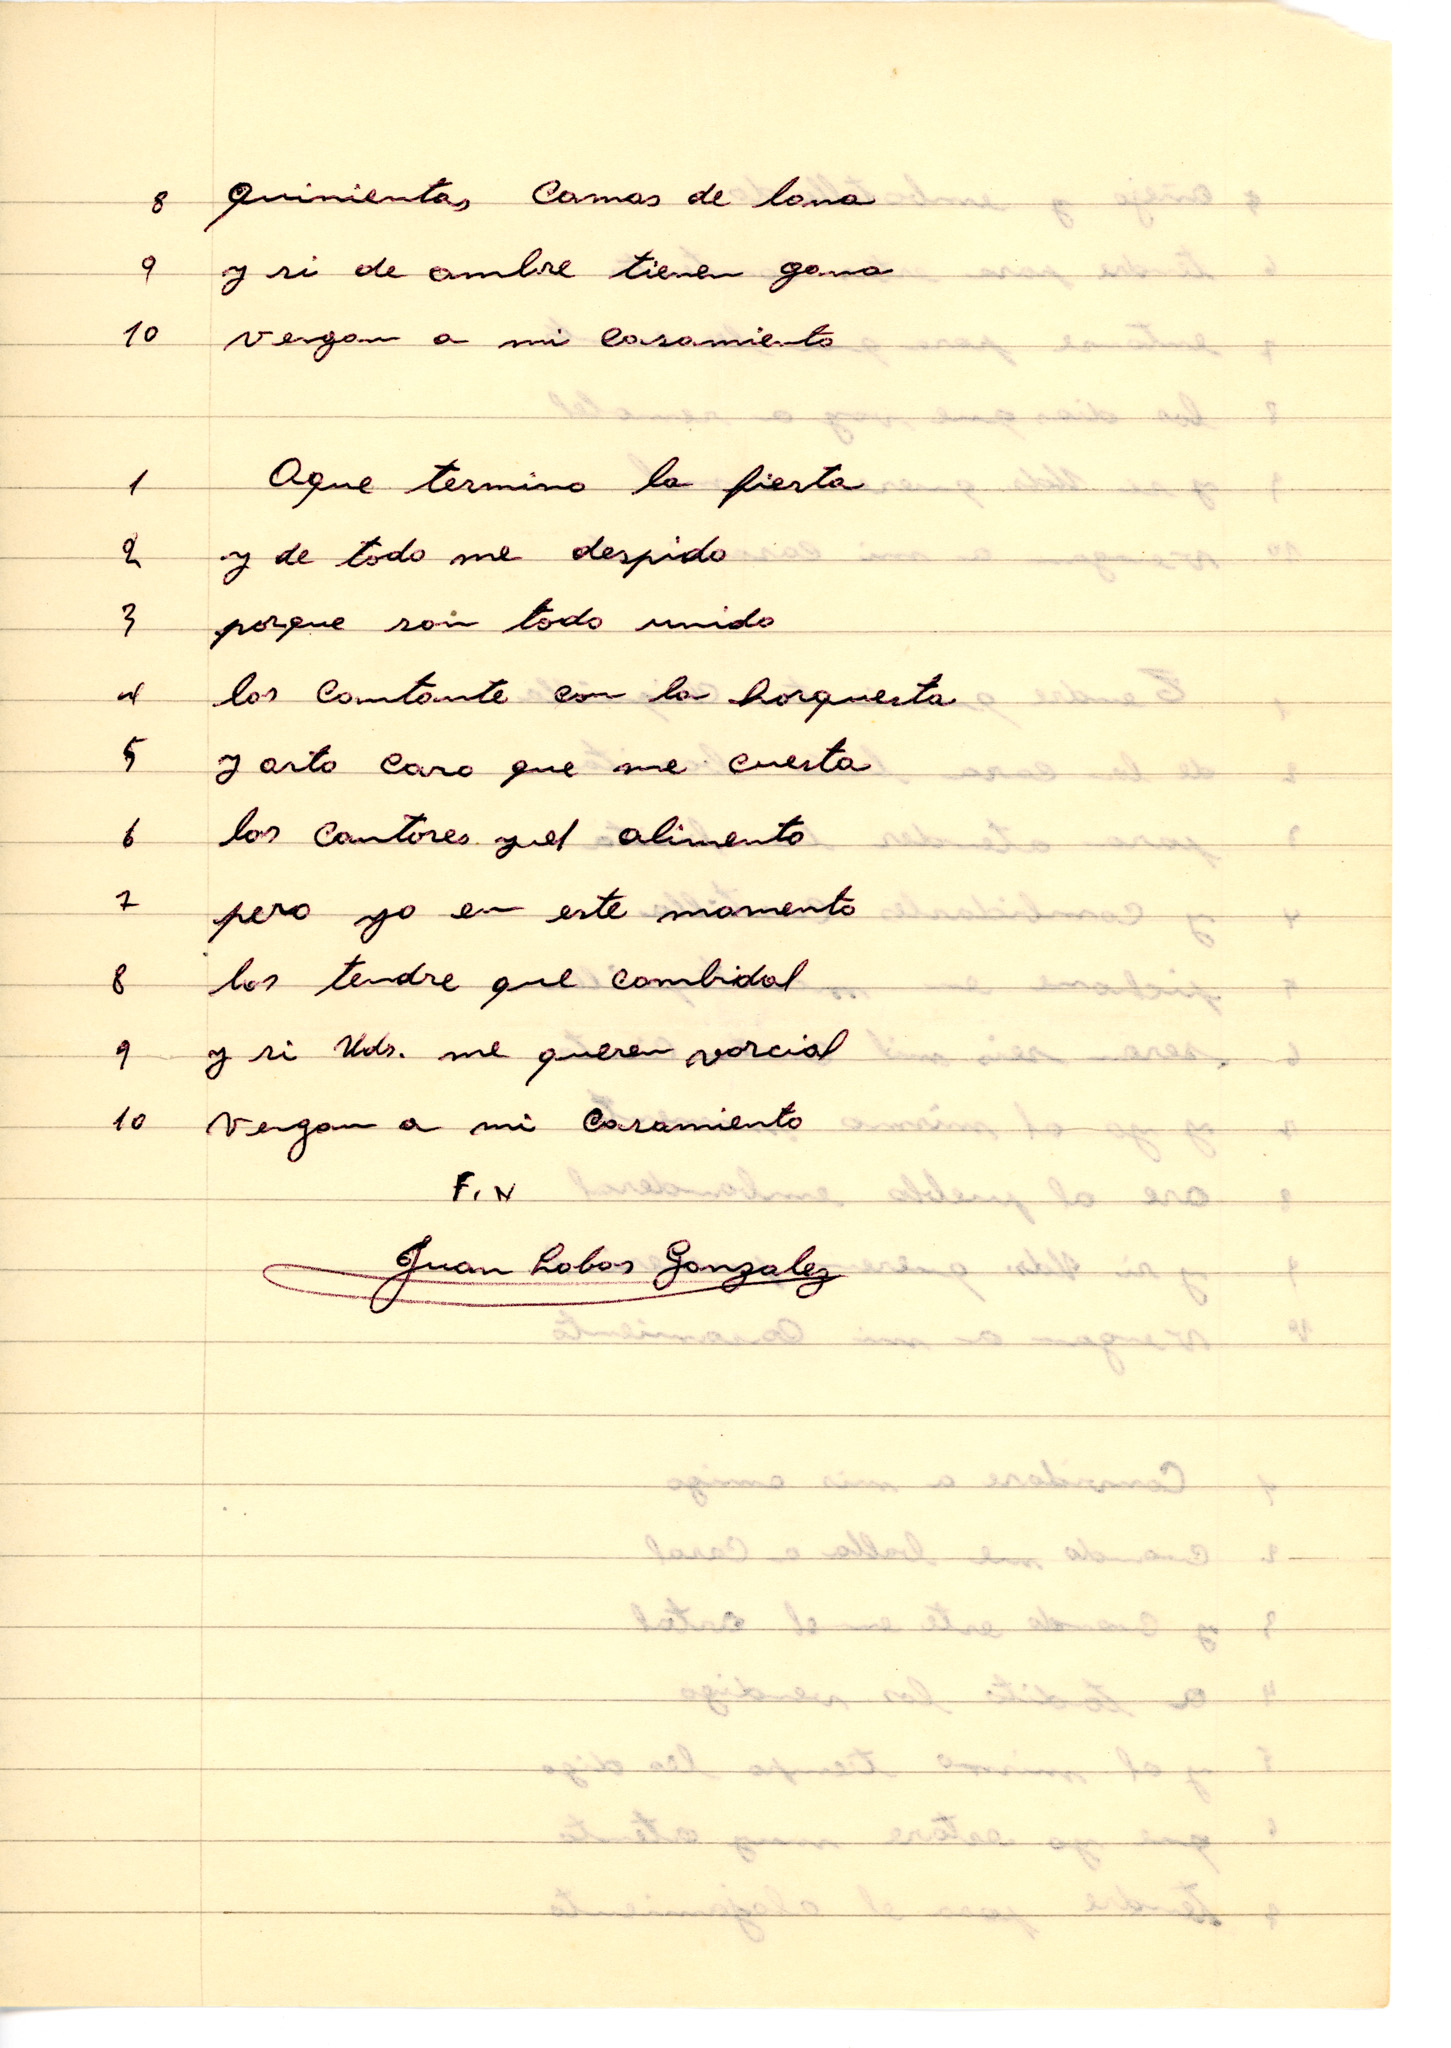 8 quinientas camas de lana
9 y si de ambre tienen gana
10 vengan a mi casamiento
1 Aque termino la fiesta
2 y de todo me despido
3 porque son todo unido
4 los cantante con la horquesta
5 y arto caro que me cuesta
6 los cantores y el alimento
7 pero yo en este momento
8 los tendre que combidal
9 y si Uds. me queren
10 vengan a mi casamiento
F.N
Juan Lobos Gonzalez